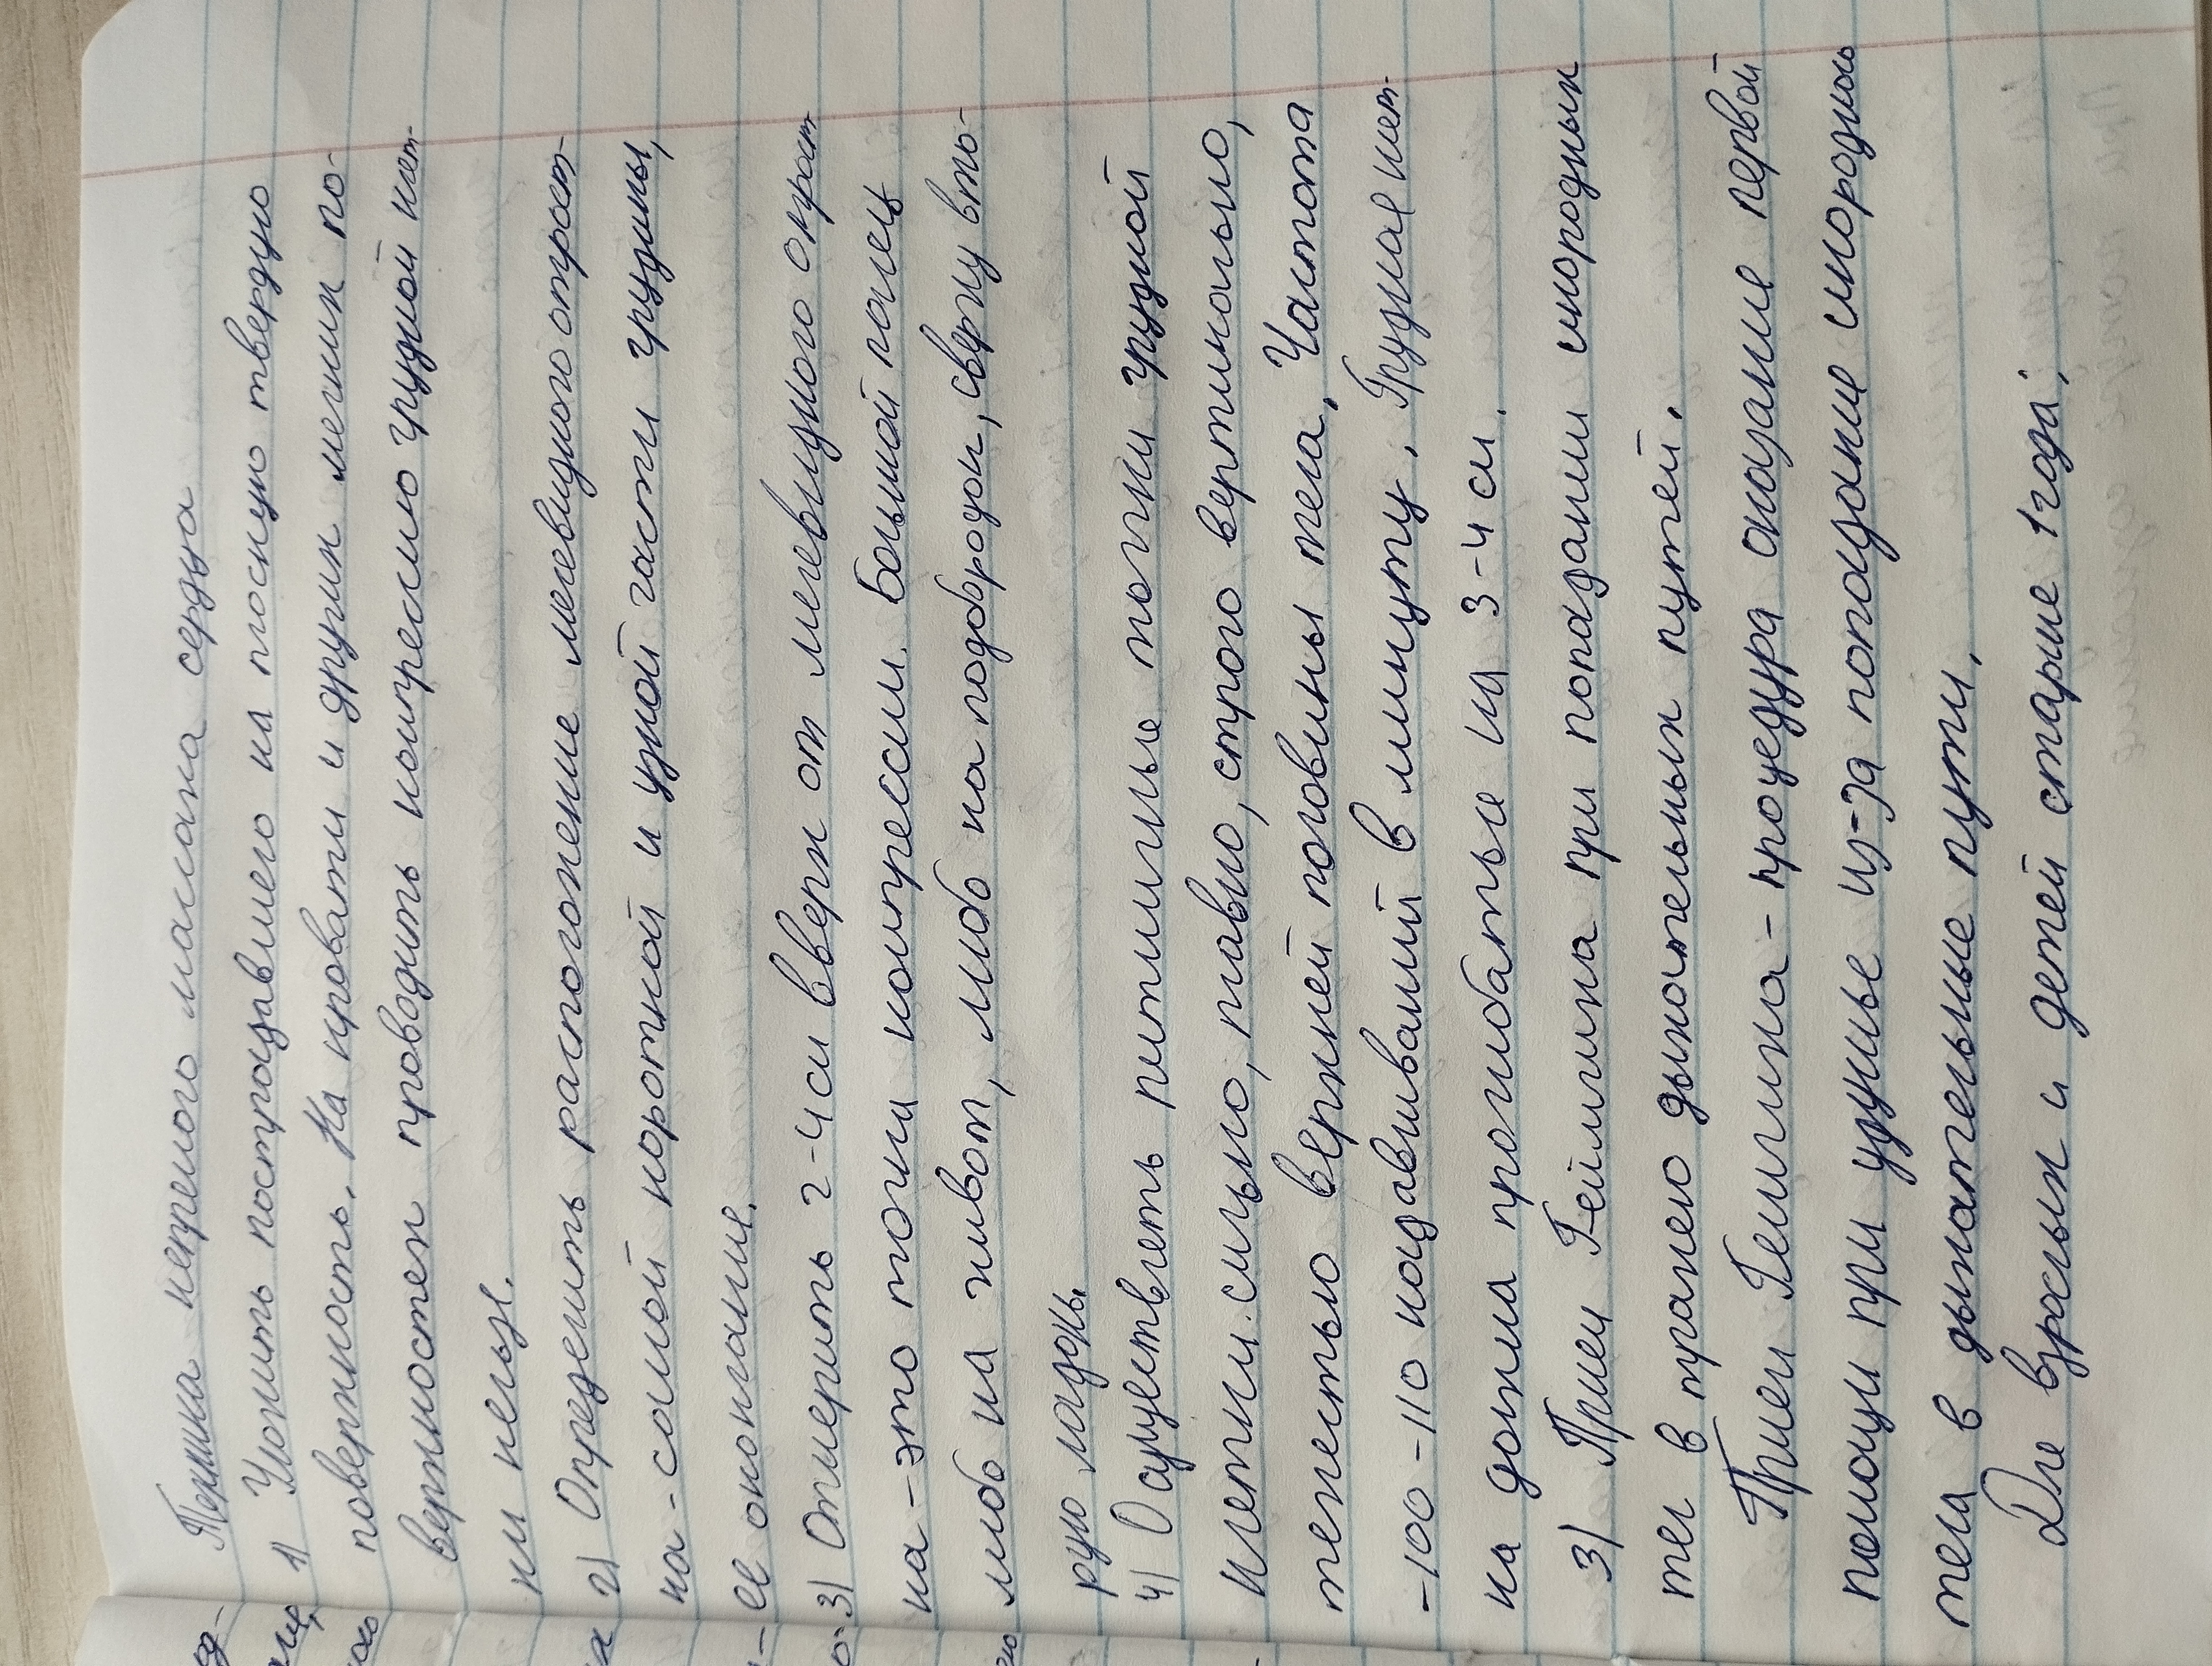 Техника непрямого массажа сердца
1) Уложить пострадавшего на плоскую твердую
поверхность. На кровати и других мягких по-
верхностях проводить компрессию грудной клет-
ки нельзя.
2) Определить расположение мечевидного отрост-
ка - самой короткой и узкой части грудины,
ее окончание.
3) Отмерить 2-4 см вверх от мечевидного отрост
ка - это точка компрессии. Большой палец
либо на живот, либо на подбородок, сверху вто-
рую ладонь.
4) Осуществлять ритмичные толчки грудной
клетки. сильно, плавно, строго вертикально,
тяжестью верхней половины тела. Частота
-100-110 надавливаний в минуту. Грудная клет-
ка должна прогибаться на 3-4 см.
3) Прием Геймлиха при попадании инородных
тел в просвет дыхательных путей.
Прием Геймлиха - процедура оказание первой
помощи при удушье из-за попадание инородного
тела в дыхательные пути.
Для взрослых и детей старше 1 года: